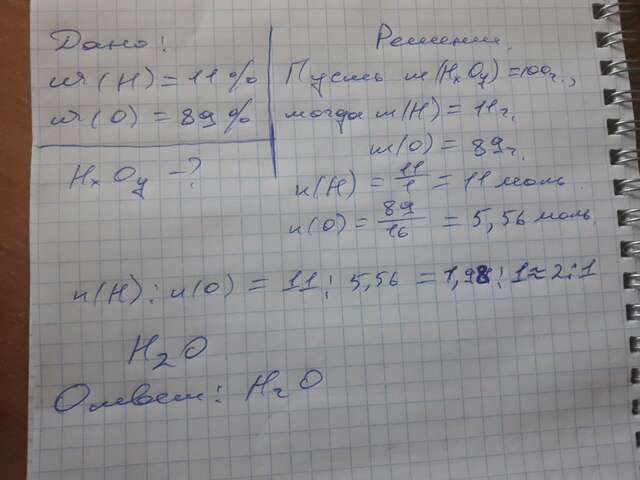 Дано:
w(H) = 11 %
w(O) = 89 %
HxOy - ?
Решение.
Пусть m(HxOy) = 100г.,
тогда m(H) = 11г.
m(O) = 89г.
n(H) = 11/1 = 11 моль.
n(O) = 89/16 = 5,56 моль.
n(H) : n(O) = 11 : 5,56 = 1,98 : 1 ≈ 2 : 1
H₂O
Ответ: H₂O